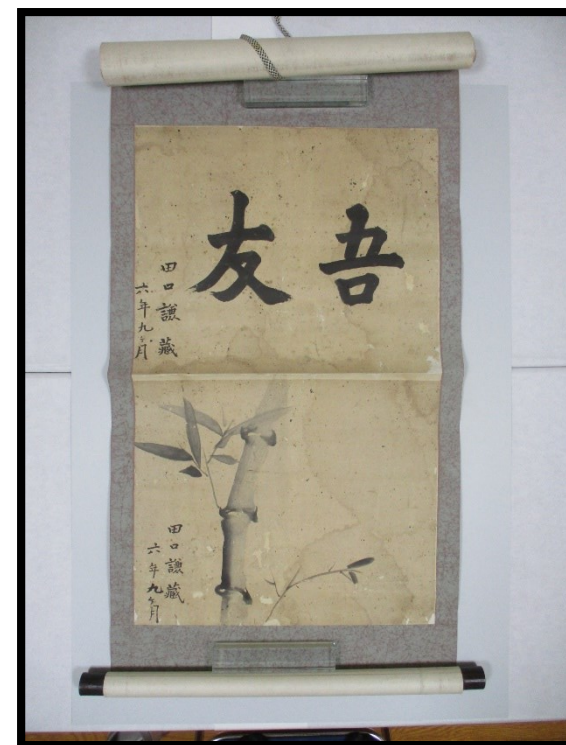 吾友
田口謙藏
六年九ヶ月
田口謙藏
六年九ヶ月